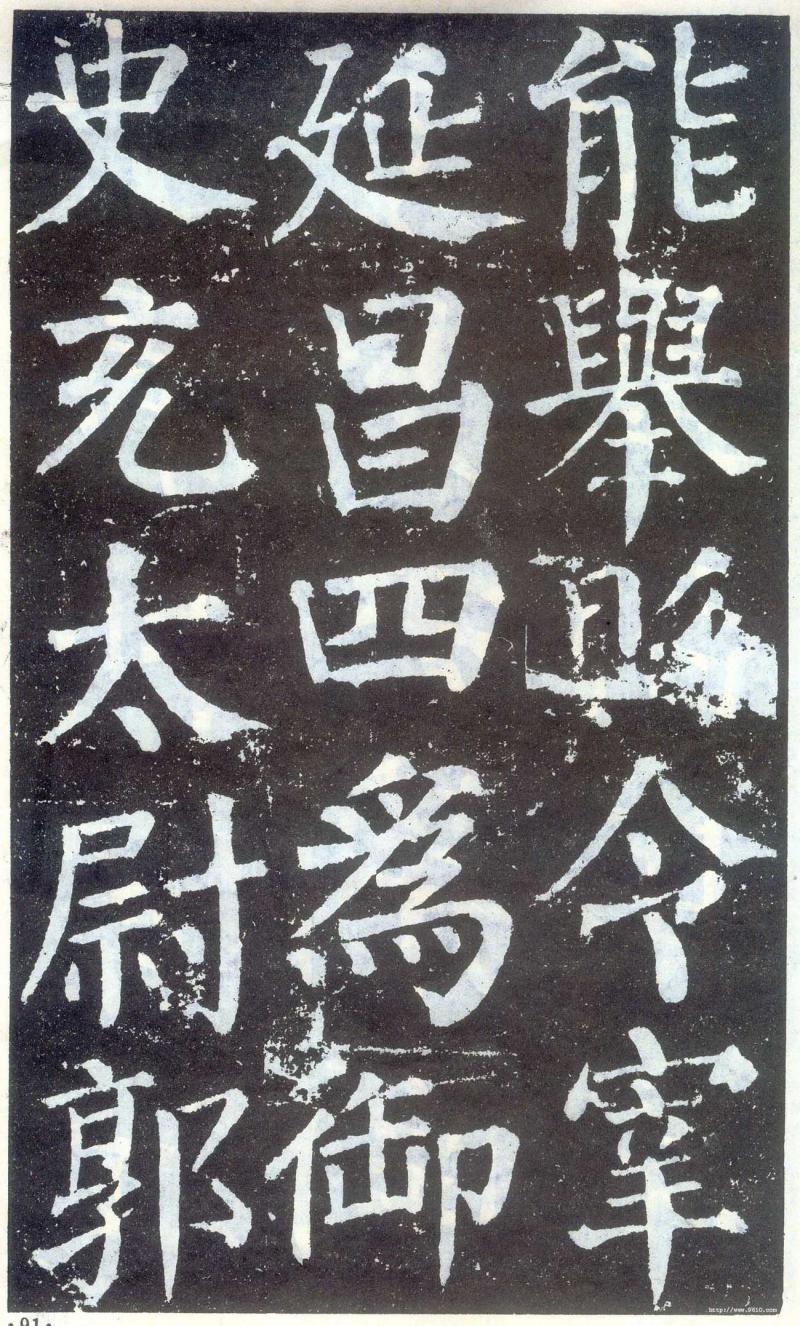 能舉縣令宰
延昌四爲御
史充太尉郭
http://www.9610.com
·91·